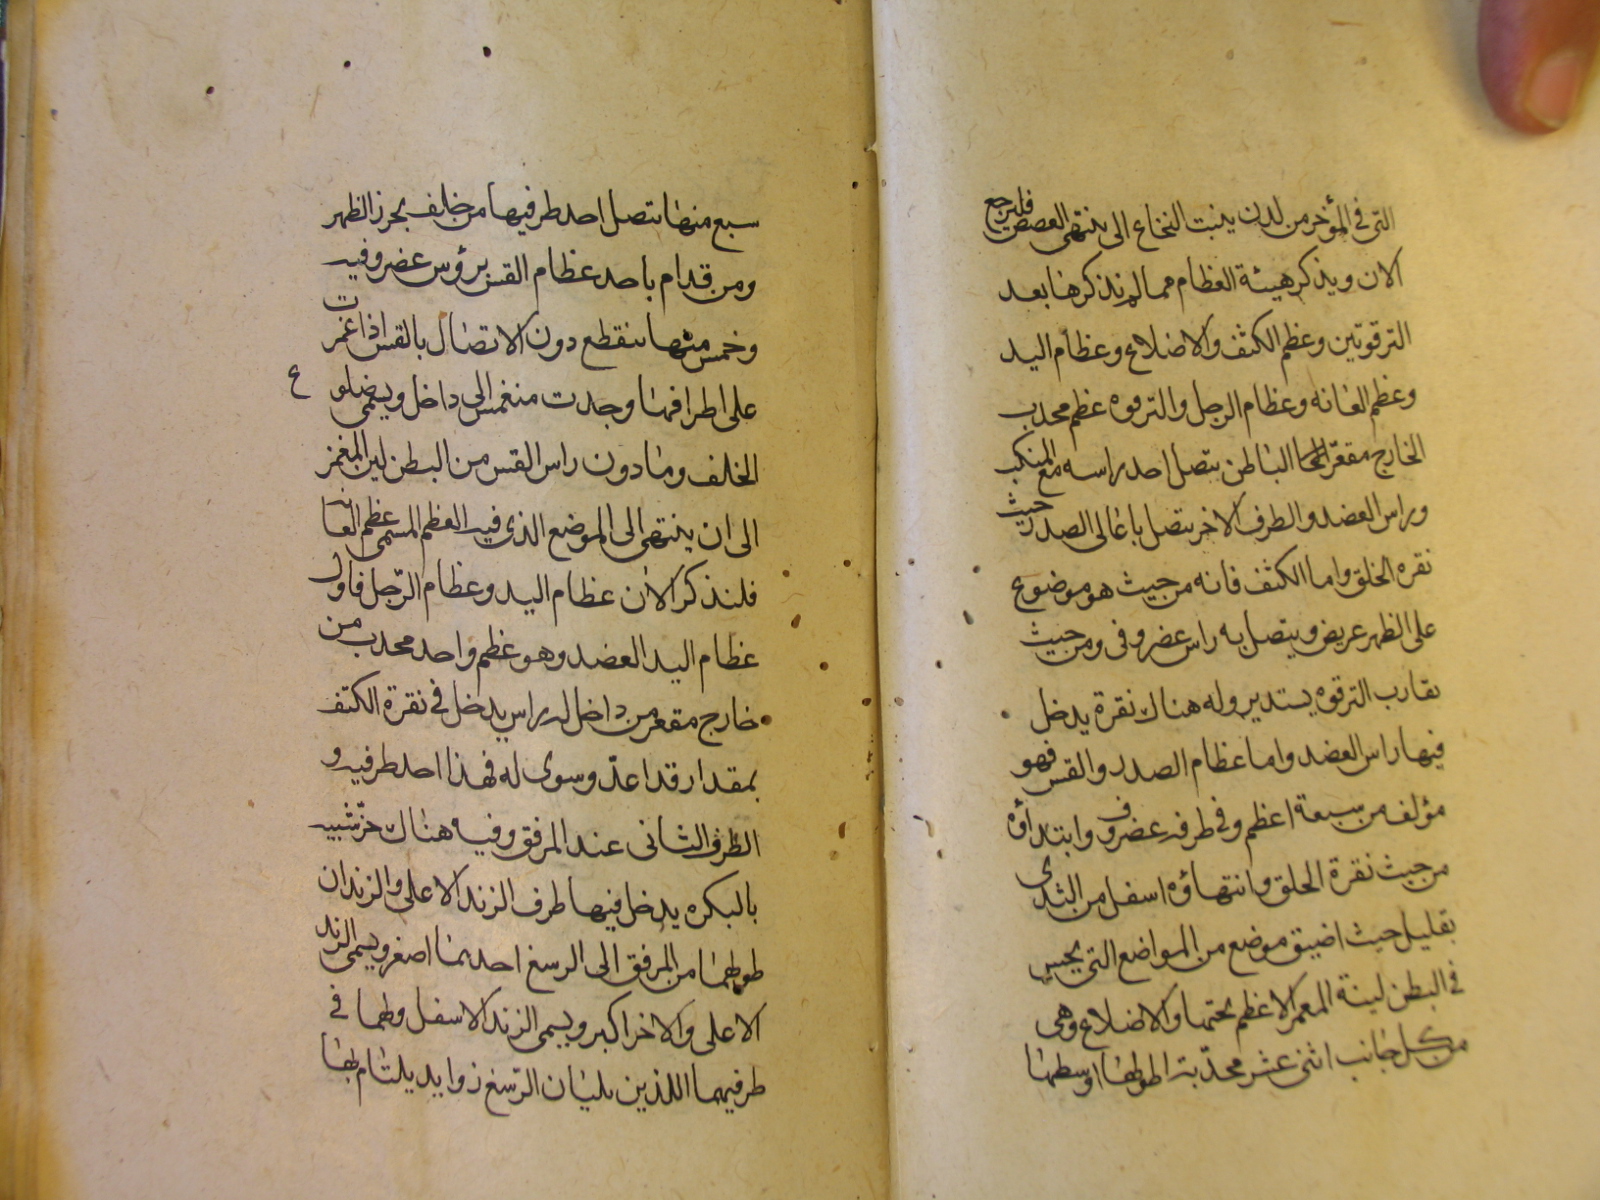 التى فى المؤخر من لدن ينبت النخاع الى ينتهى العصعص فليرجع
الان ويذكر هيئة العظام مما لم نذكرها بعد
الترقوتين وعظم الكتف والاضلاع وعظام اليد
وعظم العانه وعظام الرجل والترقوه عظم محدب
الخارج مقعر الباطن يتصل احد راسه مع المنكب
وراس العضد والطرف الاخر يتصل باعالى الصدر حيث
نقره الحلق واما الكتف فانه من حيث هو موضوع
على الظهر عريض ويتصل به راس عضروفى ومن حيث
يقارب الترقوه يستدير وله هناك نقرة يدخل
فيها راس العضد واما عظام الصدر والقس فهو
مؤلف من سبعة اعظم وفى طرفه عضروف وابتداؤه
من حيث نقرة الحلق وانتهاؤه اسفل من الثدى
بقليل حيث اضيق موضع من المواضع التى يحبس
فى البطن لينة المعمر لاعظم تحتها والاضلاع وهى
من كل جانب اثنى عشر محدبة اطولها اوسطها
سبع منها يتصل احد طرفيها من خلف بخرز الظهر
ومن قدام باحد عظام القس برؤس عضروفيه
وخمس منها تنقطع دون الاتصال بالقس اذا غمرت
على اطرافها وجدت منغمس الى داخل ويسمى ضلوع
الخلف وما دون راس القس من البطن لين المغمز
الى ان ينتهى الى الموضع الذى فيه العظم المسمى عظم العانه
فلنذكر الان عظام اليد وعظام الرّجل فاول
عظام اليد العضد وهو عظم واحد محدب من
خارج مقعر من داخل له راس يدخل فى نقرة الكتف
بمقدار قد اعدّ وسوى له فهذا احد طرفيه و
الطرف الثانى عند المرفق وفيه هناك حزّ شبيه
بالبكره يدخل فيها طرف الزند الاعلى والزندان
طولهما من المرفق الى الرسغ احدهما اصغر ويسمى الزند
الاعلى والاخر اكبر ويسمى الزند الاسفل ولهما فى
طرفيهما اللذين يليان الرّسغ زوايد يلتام بها